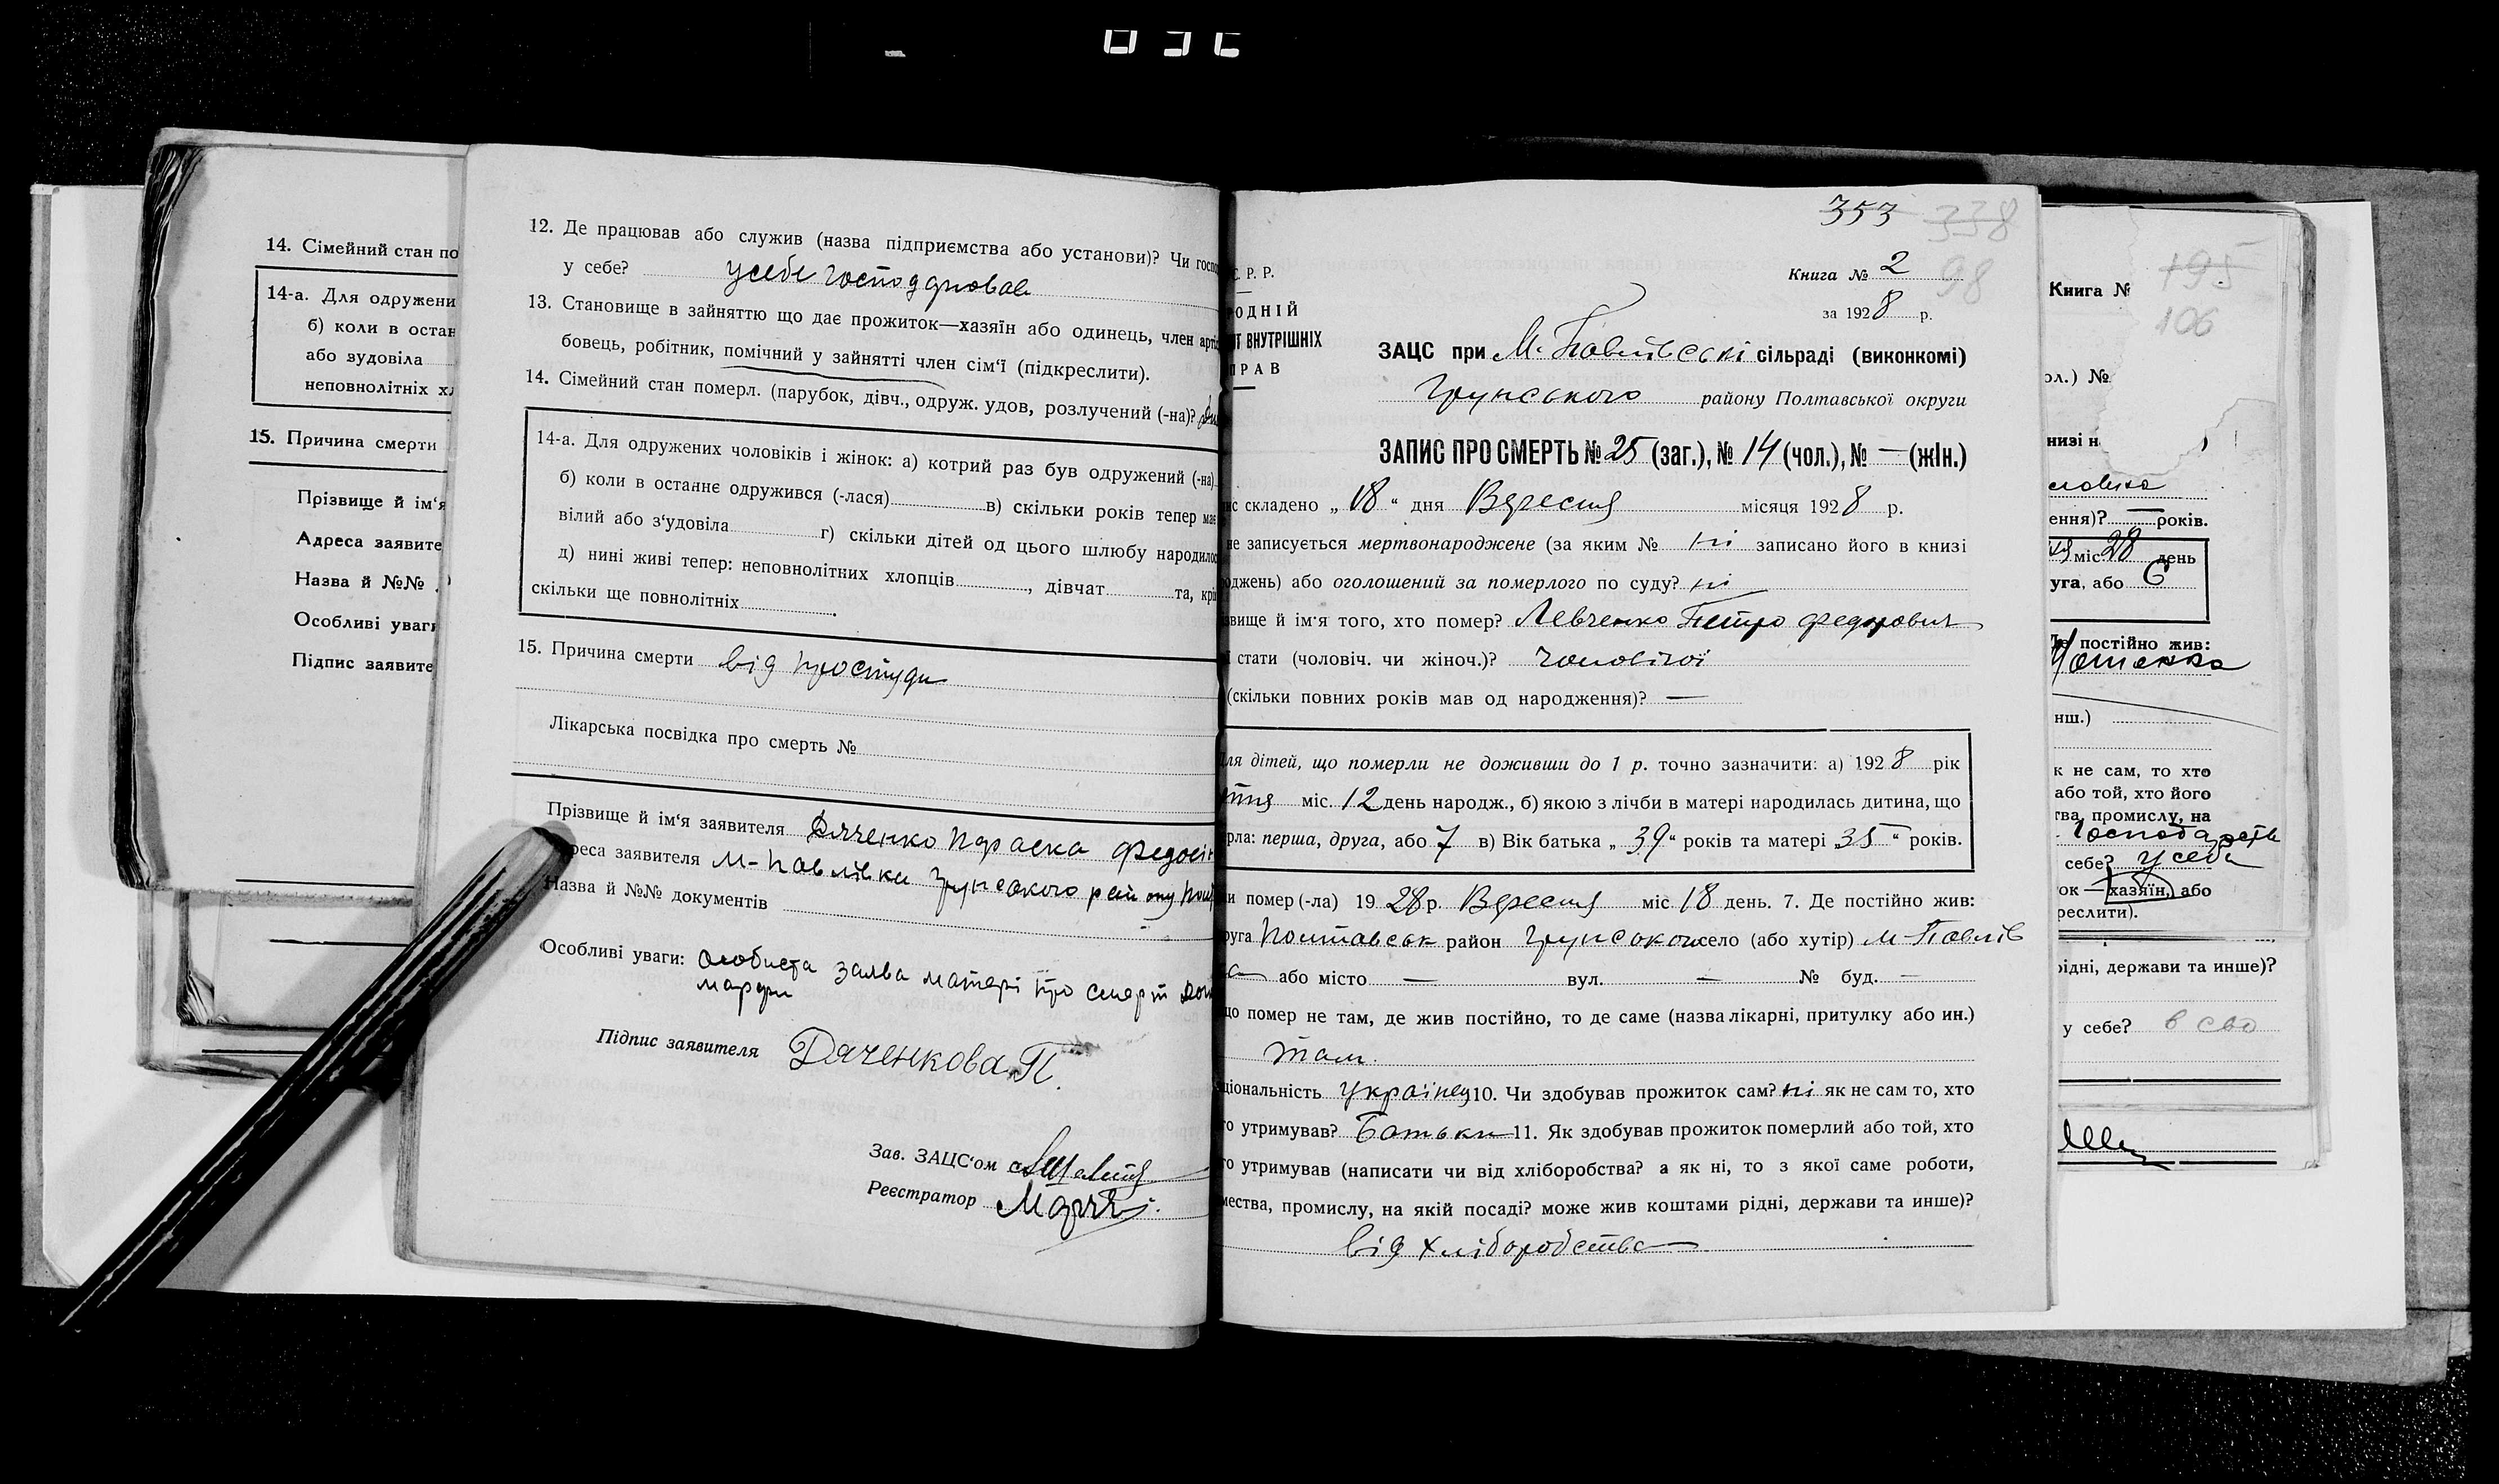 14. Сімейний стан по
14-а. Для одружени
б) коли в остан
або зудовіла
неповнолітніх хл
15. Причина смерти
Прізвище й ім‘я
Адреса заявите
Назва й №№
Особливі уваги
Підпис заявите
12. Де працював або служив (назва підприємства або установи)? Чи госпо
у себе? усебе господрював
13. Становище в зайняттю що дає прожиток—хазяїн або одинець, член арті
бовець, робітник, помічний у зайнятті член сім‘ї (підкреслити).
14. Сімейний стан померл. (парубок, дівч., одруж. удов, розлучений (-на)?
14-а. Для одружених чоловіків і жінок: а) котрий раз був одружений (-на)
б) коли в останнє одружився (-лася) в) скільки років тепер має
вілий або з‘удовіла г) скільки дітей од цього шлюбу народилос
д) нині живі тепер: неповнолітних хлопців , дівчат та, крі
скільки ще повнолітніх .
15. Причина смерти від простуди
Лікарська посвідка про смерть №
Прізвище й ім‘я заявителя Дяченко Параска Федосі
реса заявителя М-Павлівка Грунського району Пол
Назва й №№ документів
Особливі уваги: Особиста заява матері про смерт
марфи
Підпис заявителя Дяченкова П.
Зав. ЗАЦС‘ом
Реєстратор
353 338
С. Р. Р.
Книга № 2 98
РОДНІЙ
за 1928 р.
НТ ВНУТРІШНІХ
ПРАВ
ЗАЦС при М. Павлівській сільраді (виконкомі)
Грунського району Полтавської округи
ЗАПИС ПРО СМЕРТЬ № 25 (заг.), № 14 (чол.), № — (жін.)
ис складено „18“ дня Вересня місяця 1928 р.
не записується мертвонароджене (за яким № ні записано його в книзі
роджень) або оголошений за померлого по суду? ні
звище й ім‘я того, хто помер? Левченко Петро Федорович
ї стати (чоловіч. чи жіноч.)? чоловічої
(скільки повних років мав од народження)? —
Для дітей, що померли не доживши до 1 р. точно зазначити: а) 1928 рік
міс. 12 день народж., б) якою з лічби в матері народилась дитина, що
рла: перша, друга, або 7 в) Вік батька „39“ років та матері 35“ років.
и помер (-ла) 1928 р. Вересня міс 18 день. 7. Де постійно жив:
руга Полтавськ район Грунсокого село (або хутір) М-Павлів
ка або місто — вул. — № буд. —
що помер не там, де жив постійно, то де саме (назва лікарні, притулку або ин.)
там.
ціональність українец 10. Чи здобував прожиток сам? ні як не сам то, хто
го утримував? Батьки 11. Як здобував прожиток померлий або той, хто
го утримував (написати чи від хліборобства? а як ні, то з якої саме роботи,
мества, промислу, на якій посаді? може жив коштами рідні, держави та инше)?
від хліборобства
195
Книга №
106
ол.) №
низі н
ення)? — років.
міс 28 день
уга, або 6
Де постійно жив:
нш.)
к не сам, то хто
або той, хто його
тва, промислу, на
господарств
себе? у себе
ок — хазяїн, або
реслити).
рідні, держави та инше)?
у себе? в сво